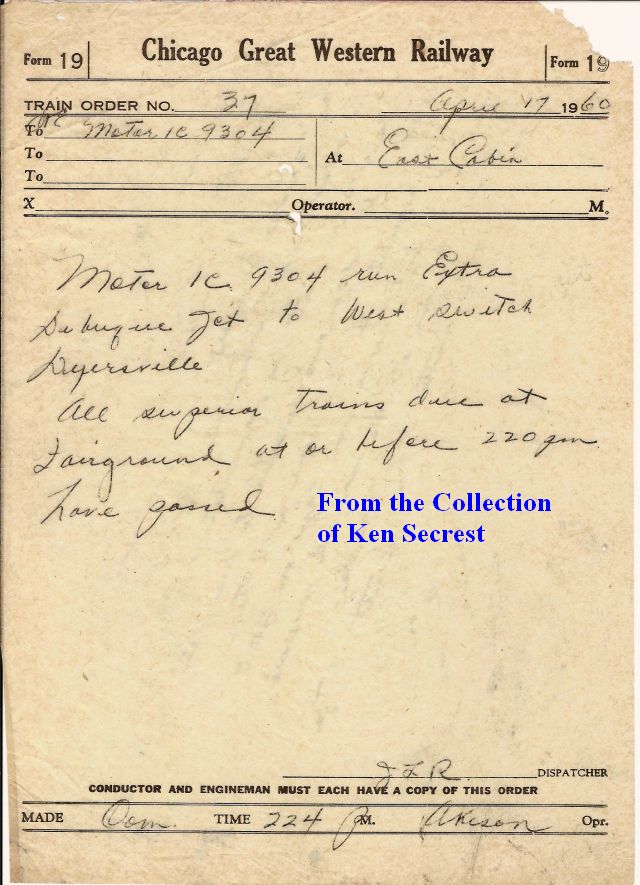 Form 19 Chicago Great Western Railway Form 19
TRAIN ORDER NO. 37 April 17 1960
To C&E Motor IC 9304
To At East Cabin
To
X Operator. M.
Motor IC. 9304 run Extra
Dubuque Jct to West switch
Dyersville
All superior trains due at
Fairground at or before 220 pm
have passed.
From the Collection
of Ken Secrest
JLR DISPATCHER
CONDUCTOR AND ENGINEMAN MUST EACH HAVE A COPY OF THIS ORDER
MADE Com. TIME 224 P M. Akeson Opr.